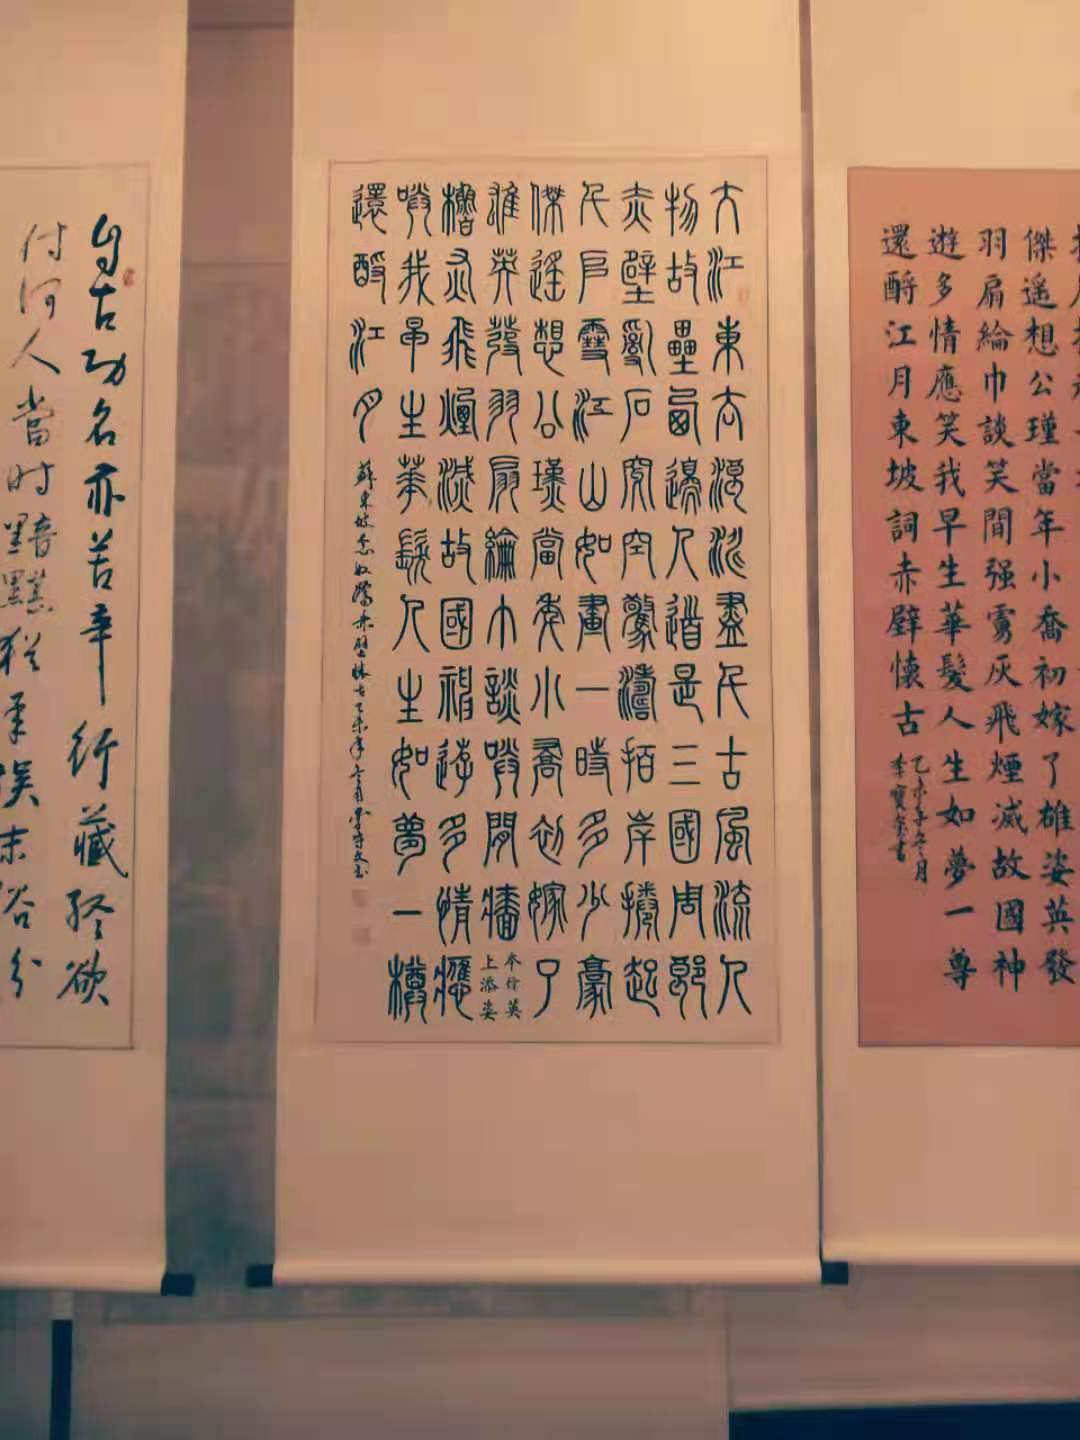 傑遥想公瑾當年小喬初嫁了雄姿英發
羽扇綸巾談笑間强虜灰飛煙滅故國神
遊多情應笑我早生華髮人生如夢一尊
還酹江月東坡詞赤壁懷古
乙未年冬月
大江東去浪淘盡千古風流人
物故壘西邊人道是三國周郎
赤壁亂石穿空驚濤拍岸捲起
千堆雪江山如畫一時多少豪
傑遥想公瑾當年小喬初嫁了
雄英發羽扇綸巾談笑間檣
本行英
上添姿
櫓灰飛煙滅故國神遊多情應
笑我早生華髮人生如夢一樽
還酹江月
蘇東坡念奴嬌赤壁懷古乙未年冬月
自古功名亦苦辛行藏終欲
付何人當時黯黮猶承誤末俗紛